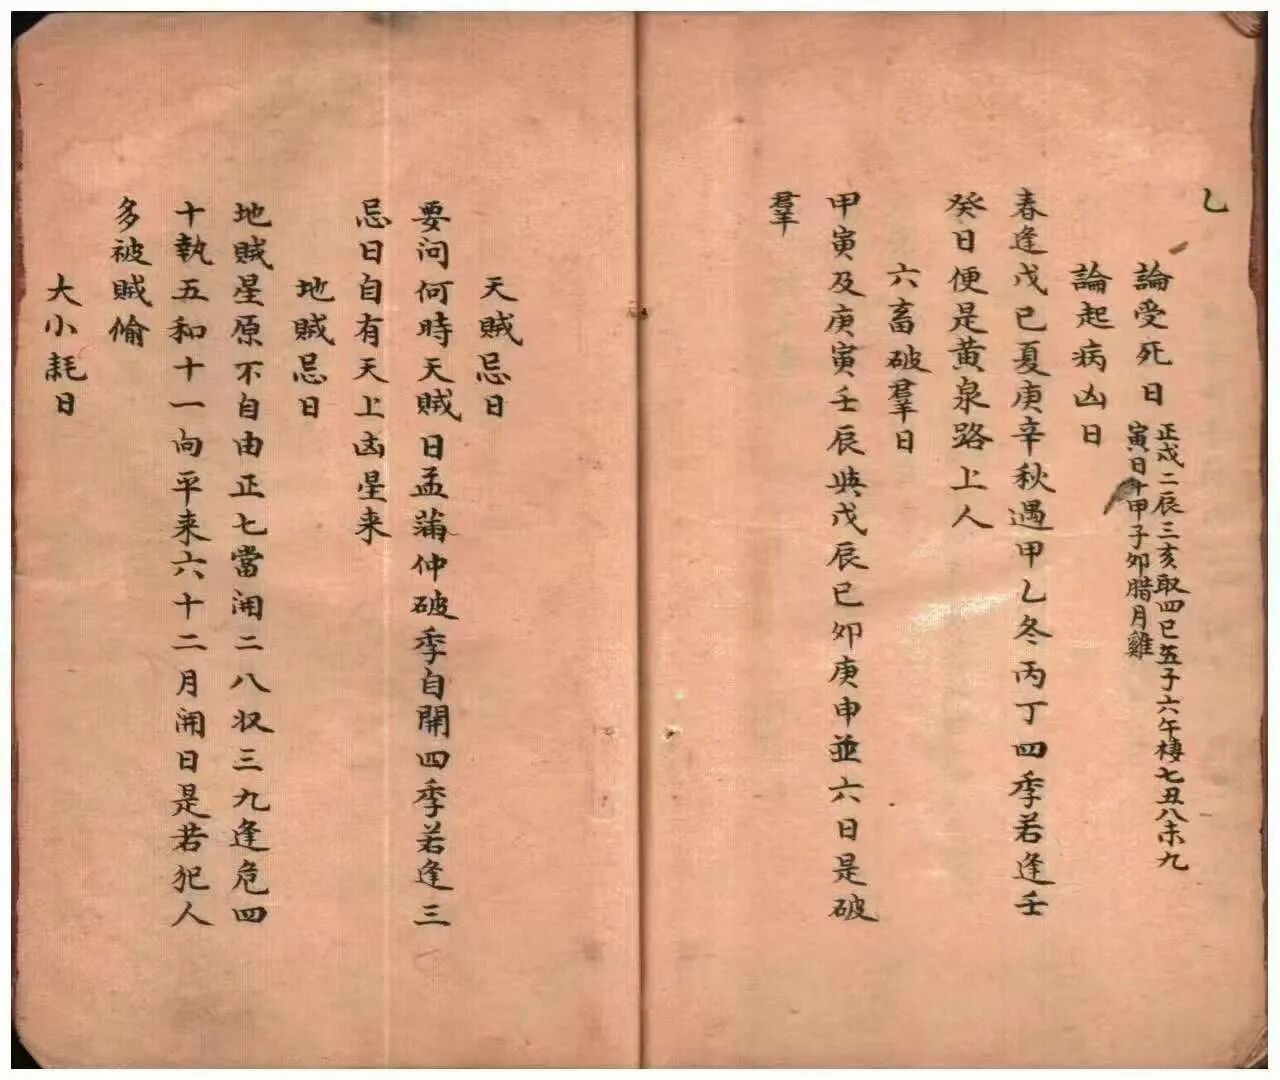 乙
論受死日
正戌二辰三亥取四巳五子六午棲七丑八未九
寅日十甲子卯腊月雞
論起病凶日
春逢戊己夏庚辛秋遇甲乙冬丙丁四季若逢壬
癸日便是黃泉路上人
六畜破羣日
甲寅及庚寅壬辰與戊辰己卯庚申並六日是破
羣
天賊忌日
要问何時天賊日孟蒲仲破季自開四季若逢三
忌日自有天上凶星来
地賊忌日
地賊星原不自由正七當闲二八収三九逢危四
十執五和十一向平来六十二月闲日是若犯人
多被賊偷
大小耗日